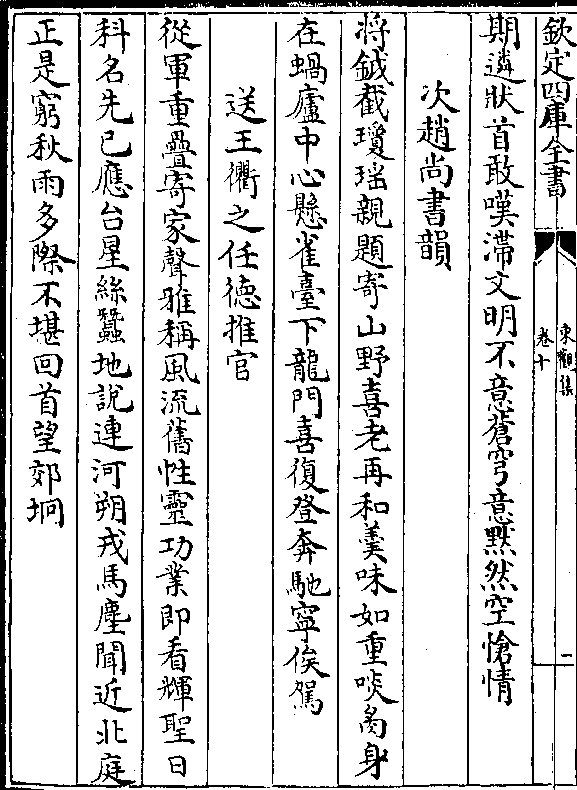 欽定四庫全書
東觀集
卷十
一
期遴狀首敢嘆滯文明不意蒼穹意黙然空愴情
次趙尚書韻
將鉞截瓊瑶親題寄山野喜老再和羮味如重啖𦚾身
在蝸廬中心懸雀臺下龍門喜復登奔馳寧俟駕
送王衢之任德推官
從軍重疊寄家聲雅稱風流舊性靈功業即看輝聖日
科名先已應台星絲蠶地說連河朔戎馬塵聞近北庭
正是窮秋雨多際不堪回首望郊坰